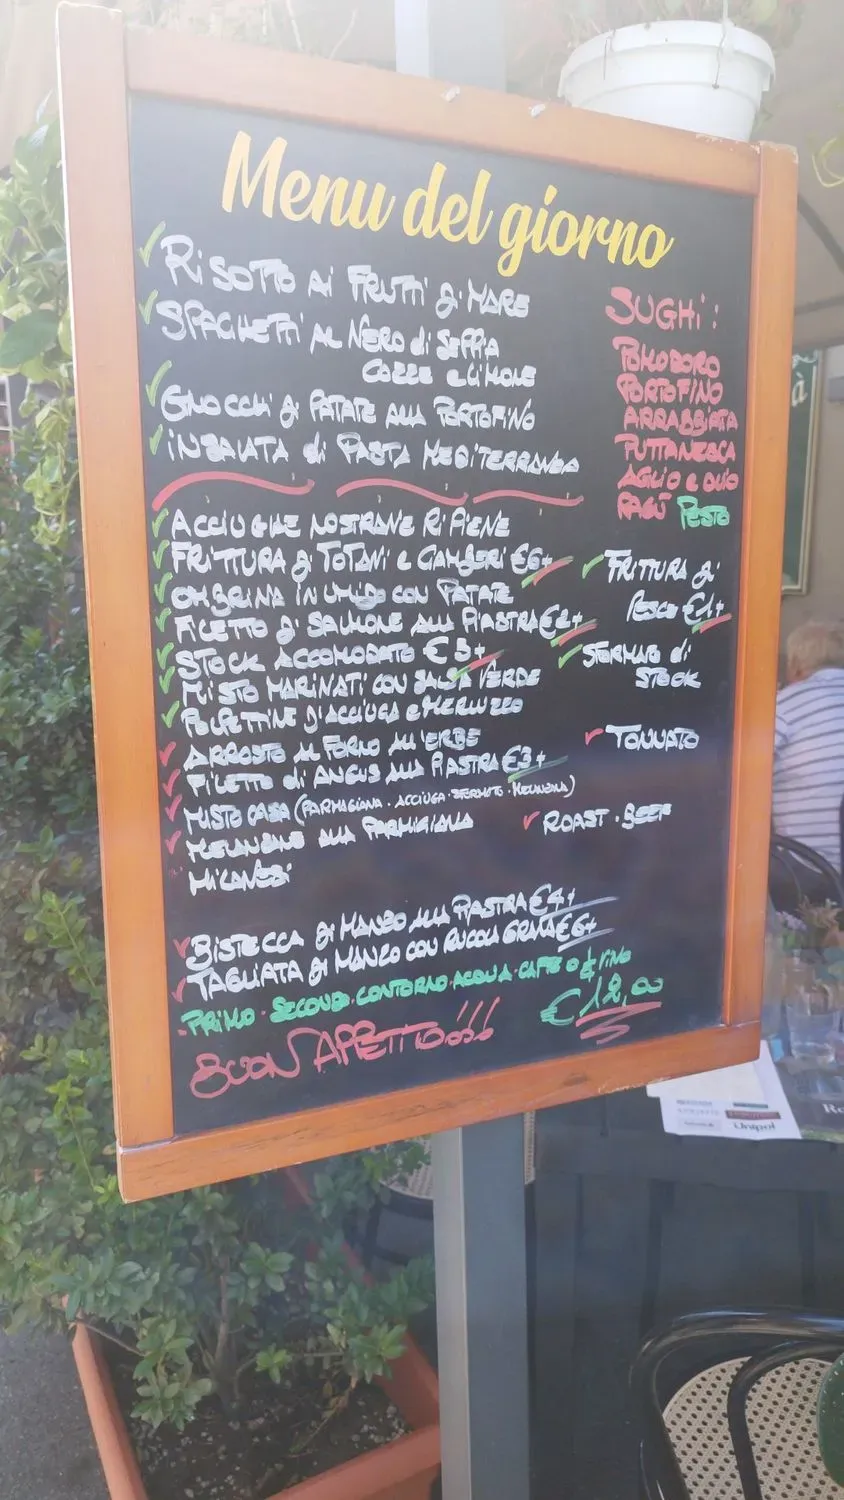 Menu del giorno
RISOTTO AI FRUTTI DI MARE
SPAGHETTI AL NERO di SEPPIA
COZZE e LIMONE
GNOCCHI DI PATATE ALLA PORTOFINO
INSALATA di PASTA MEDITERRANEA
SUGHI:
POMODORO
PORTOFINO
ARRABBIATA
PUTTANESCA
AGLIO e OLIO
RAGÙ PESTO
ACCIUGHE NOSTRANE RIPIENE
FRITTURA DI TOTANI E GAMBERI €6+
OMBRINA IN UMIDO CON PATATE
FILETTO DI SALMONE ALLA PIASTRA €2+
STOCK ACCOMODATO €3+
MISTO MARINATI CON SALSA VERDE
POLPETTINE D'ACCIUGA e MERLUZZO
FRITTURA DI
PESCE €1+
di
STOCK
ARROSTO AL FORNO ALL'ERBE
FILETTO di ANGUS ALLA PIASTRA €3+
MISTO CASA (PARMIGIANA · ACCIUGA · · MELANZANA)
MELANZANE ALLA PARMIGIANA
MILANESI
TONNATO
ROAST · BEEF
BISTECCA DI MANZO ALLA PIASTRA €4+
TAGLIATA DI MANZO CON RUCOLA GRANA €6+
PRIMO · SECONDO · CONTORNO · ACQUA · CAFFE O ¼ VINO
€12,00
BUON APPETITO!!!
Unipol